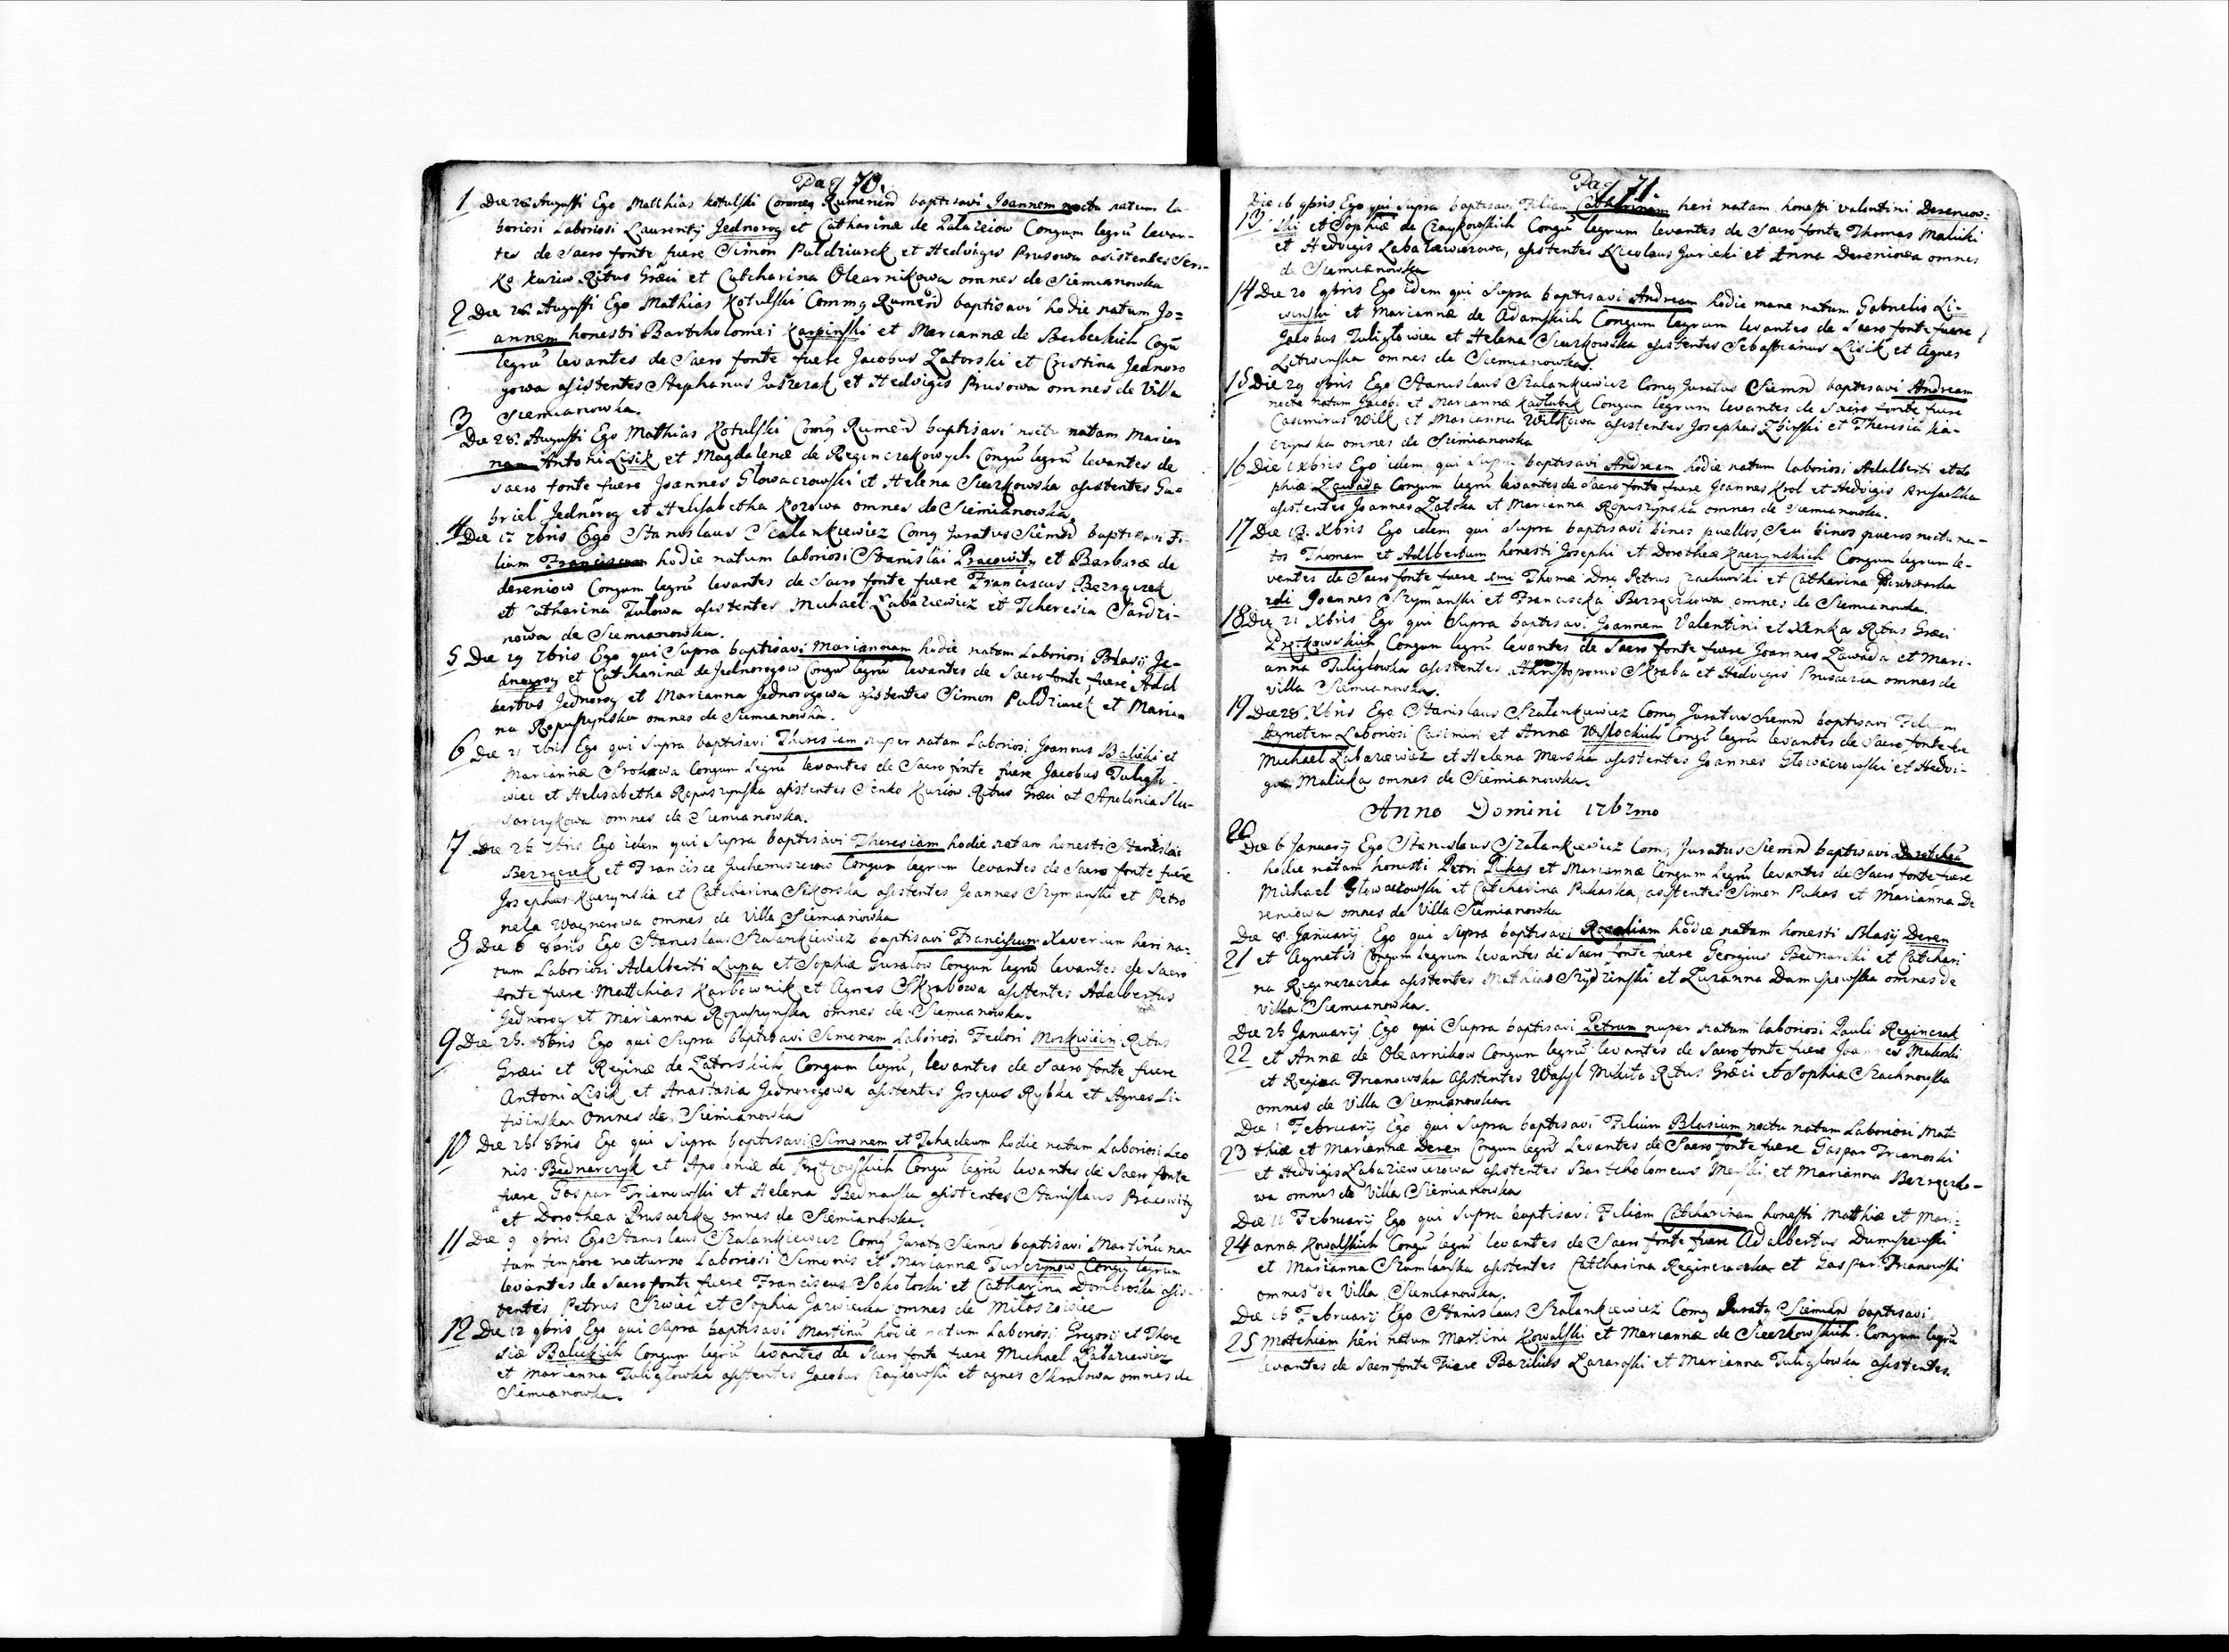 Pag 70.
1 Die 28 Augusti Ego Matthias Kotulski Commeg Rumenen baptisavi Joannem noctu natum la-
boriosi Laboriosi Laurentij Jednorog et Catharinæ de Lalaziciow Congum legrũ levan-
tes de Sacro fonte fuere Simon Puldziurek et Hedvigis Prusowa asistentes Sen-
ko Kuriw Ritus Græci et Catcharina Olearnikowa omnes de Siemianowka
2 Die 28 Augusti Ego Mathias Kotulski Commg Rumend baptisavi hodie natum Jo=
annem honesti Bartcholomei Karpinski et Mariannæ de Berbeckich Cogũ
legrũ levantes de Sacro fonte fuere Jacobus Zatorski et Cristina Jednoro
gowa asistentes Stephanus Juszczak et Hedvigis Prusowa omnes de Villa
Siemianowka.
3 Die 28. Augusti Ego Mathias Kotulski Comg Rumend baptisavi noctu natam Marian
nam Antoni Lisik et Magdalenæ de Reginczakowych Congũ legrũ levantes de
sacro fonte fuere Joannes Glowaczowski et Helena Sieczkowska asistentes Ga-
briel Jednorog et Helisabetha Kozowa omnes de Siemianowka.
4 Die 17 7bris Ego Stanislaus Szalankiewicz Comg Juratus Siemnd baptisavi Fi-
lium Franciscum hodie natum laboriosi Stanislai Pracowity et Barbaræ de
dereniow Congum legrũ levantes de Sacro fonte fuere Franciscus Berzqczek
et Catharina Tulowa asistentes Michael Labaziewicz et Tcheresia Sardzi-
nowa de Siemianowka.
5 Die 19 7bris Ego qui Supra baptisavi Mariannam hodie natam Laboriosi Blasij Je-
dnorog et Catcharinæ de Jednorogow Congũ legrũ levantes de Sacro fonte fuere Adal
bertus Jednorog et Marianna Jednorogowa asistentes Simon Puldziurek et Marian
na Ropuszynska omnes de Siemianowka.
6 Die 21 7bris Ego qui Supra baptisavi Theresiam nuper natam Laboriosi Joannis Balicki et
Mariannæ Srokowa Congum legrũ levantes de Sacro fonte fuere Jacobus Tuliglo-
wiec et Helisabetha Ropuszynska asistentes Senko Kuriow Ritus Græci et Apolonia Slu-
sarczykowa omnes de Siemianowka.
7 Die 26 7bris Ego idem qui Supra baptisavi Theresiam hodie natam honesti Stanislai
Berzqczek et Francisce Juchemiszczow Congum legrum levantes de Sacro fonte fuere
Josephus Kaczynska et Catcharina Sikorska asistentes Joannes Szymanski et Petro
nela Wagnerowa omnes de Villa Siemianowka
8 Die 6 8bris Ego Stanislaus Szalankiewicz baptisavi Franciscum Xaverium heri na-
tum Laboriosi Adalberti Lupa et Sophiæ Guralow Congum legrũ levantes de Sacro
fonte fuere Mattchias Karbownik et Agnes Skrabowa asistentes Adalbertus
Jednorog et Marianna Ropuszynska omnes de Siemianowka.
9 Die 26. 8bris Ego qui Supra baptisavi Simonem Laboriosi Fedori Morkwicin Ritus
Græci et Reginæ de Zatorskich Congum legrũ, levantes de Sacro fonte fuere
Antoni Lisik et Anastasia Jednorogowa asistentes Josepus Rybka et Agnes Li-
twinska omnes de Siemianowka
10 Die 26 8bris Ego qui Supra baptisavi Simonem et Tchadeum hodie natum Laboriosi Leo
nis Bednarczyk et Apoloniæ de Congũ legrũ levantes de Sacro fonte
fuere Gaspar Trianowski et Helena Bednarska asistentes Stanislaus Pracowity
et Dorothea Prusaczka omnes de Siemianowka.
11 Die 9 9bris Ego Stanislaus Szalankiewicz Comg Juratg Siemnd baptisavi Martinũ na-
tum tempore nocturno Laboriosi Simonis et Mariannæ Turczynow Congũ legrum
levantes de Sacro fonte fuere Franciscus Sokoloski et Catharina Dombroska asis-
tentes Petrus Szwiec et Sophia Jarwiecka omnes de Miloszowice
12 Die 12 9bris Ego qui Supra baptisavi Martinũ hodie natum Laboriosi Gregorij et There
siæ Balickich Congum legrũ levantes de Sacro fonte fuere Michael Labaziewicz
et Marianna Tuliglowka asistentes Jacobus Czaykowski et agnes Skrabowa omnes de
Siemianowka.
Pag 71.
Die 16 9bris Ego qui Supra baptisavi Filiam Catharinam heri natam honesti Valentini Dereniow=
13 ski et Sophiæ de Czaykowskich Congũ legrum levantes de Sacro fonte Thomas Malicki
et Hedvigis Labaziewiczowa, asistentes Nicolaus Juricki et Anna Dereniowa omnes
de Siemianowka
14 Die 20 9bris Ego idem qui Supra baptisavi Andream hodie mane natum Gabrielis Li-
winski et Mariannæ de Adamskich Congum legrum levantes de Sacro fonte fuere
Jacobus Tuliglowiec et Helena Sieczkowska asistentes Sebastianus Lisik et Agnes
Litwinska omnes de Siemianowka.
15 Die 29 9bris Ego Stanislaus Szalankiewicz Comg Juratus Siemnd baptisavi Andream
nocte natum Jacobi et Mariannæ Kadlubik Congum legrum levantes de Sacro fonte fuere
Casimirus Wilk et Marianna Wilkowa asistentes Josephus Zbirski et Theresia Ka-
czynska omnes de Siemianowka
16 Die 1 Xbris Ego idem qui Supra baptisavi Andream hodie natum laboriosi Adalberti et So
phiæ Zawada Congum legrũ levantes de Sacro fonte fuere Joannes Krol et Hedvigis Prusaczka
asistentes Joannes Zatcka et Marianna Ropuszynska omnes de Siemianowka.
17 Die 13. Xbris Ego idem qui Supra baptisavi bines puellos, Seu binos pueros noctu na-
tos Thomam et Adlbertum honesti Josephi et Dorotheæ Kaczynskich Congum legrum le-
ventes de Sacro fonte fuere 1mi Thomæ Petrus Czachurski et Catharina
2di Joannes Szymanski et Francisca Berzqczkowa omnes de Siemianowka.
18 Die 21 Xbris Ego qui Supra baptisavi Joannem Valentini et Xenka Ritus Græci
Congum legrũ levantes de Sacro fonte fuere Joannes Zawada et Mari-
anna Tuliglowka asistentes Skraba et Hedvigis Prusaczka omnes de
villa Siemianowka.
19 Die 28. Xbris Ego Stanislaus Szalankiewicz Comg Juratus Siemnd baptisavi Filiam
Agnetem Laboriosi Casimiri et Annæ Wislockich Congũ legrũ levantes de Sacro fonte fu
Michael Labaziewicz et Helena Merska asistentes Joannes Glowaczowski et Hedvi-
gis Malicka omnes de Siemianowka.
Anno Domini 1762mo
20 Die 6 Januarij Ego Stanislaus Szalankiewicz Comg Juratus Siemnd baptisavi Dorotcheã
hodie natam honesti Petri Pukas et Mariannæ Congum Legrũ levantes de Sacro fonte fuere
Michael Glowaczowski et Catcharina Pukaska, asistentes Simon Pukas et Marianna De
reniowa omnes de Villa Siemianowka
Die 8. Januarij Ego qui Supra baptisavi Rozaliam hodie natam honesti Blasij Deren
21 et Agnetis Congum Legrum levantes de Sacro fonte fuere Georgius Bednarski et Catchari
na Reginczaczka asistentes Mathias Szydzinski et Zuzanna Damiszowska omnes de
Villa Siemianowka.
Die 26 Januarij Ego qui Supra baptisavi Petrum nuper natum laboriosi Pauli Reginczak
22 et Annæ de Olearnikow Congum legrũ levantes de Sacro fonte fuere Joannes Malicki
et Regina Trianowska asistentes Wasyl Mikita Ritus Græci et Sophia Szachnowska
omnes de Villa Siemianowka
Die 1 February Ego qui Supra baptisavi Filium Blasium noctu natum Laboriosi Mat-
23 thiæ et Mariannæ Deren Congum legrũ Levantes de Sacro fonte fuere Gaspar Trianoski
et Hedvigis Labaziewiczowa asistentes Bartcholomeus Merski et Marianna Berzqczko-
wa omnes de Villa Siemianowka
Die 11 February Ego qui Supra baptisavi Filiam Catcharinam honesti Matthiæ et Mari-
24 annæ Kowalskich Congũ legrũ levantes de Sacro fonte fuere Adalbertus Dumiszewski
et Marianna Szumlanska asistentes Catcharina Reginczaczka et Gaspar Trianowski
omnes de Villa Siemianowka.
Die 16 February Ego Stanislaus Szalankiewicz Comg Juratg Siemian baptisavi
25 Matchiam heri natum Martini Kowalski et Mariannæ de Sieczkowskich Congum legrũ
levantes de Sacro fonte fuere Bazilius Lazaroski et Marianna Tuliglowka asistentes.